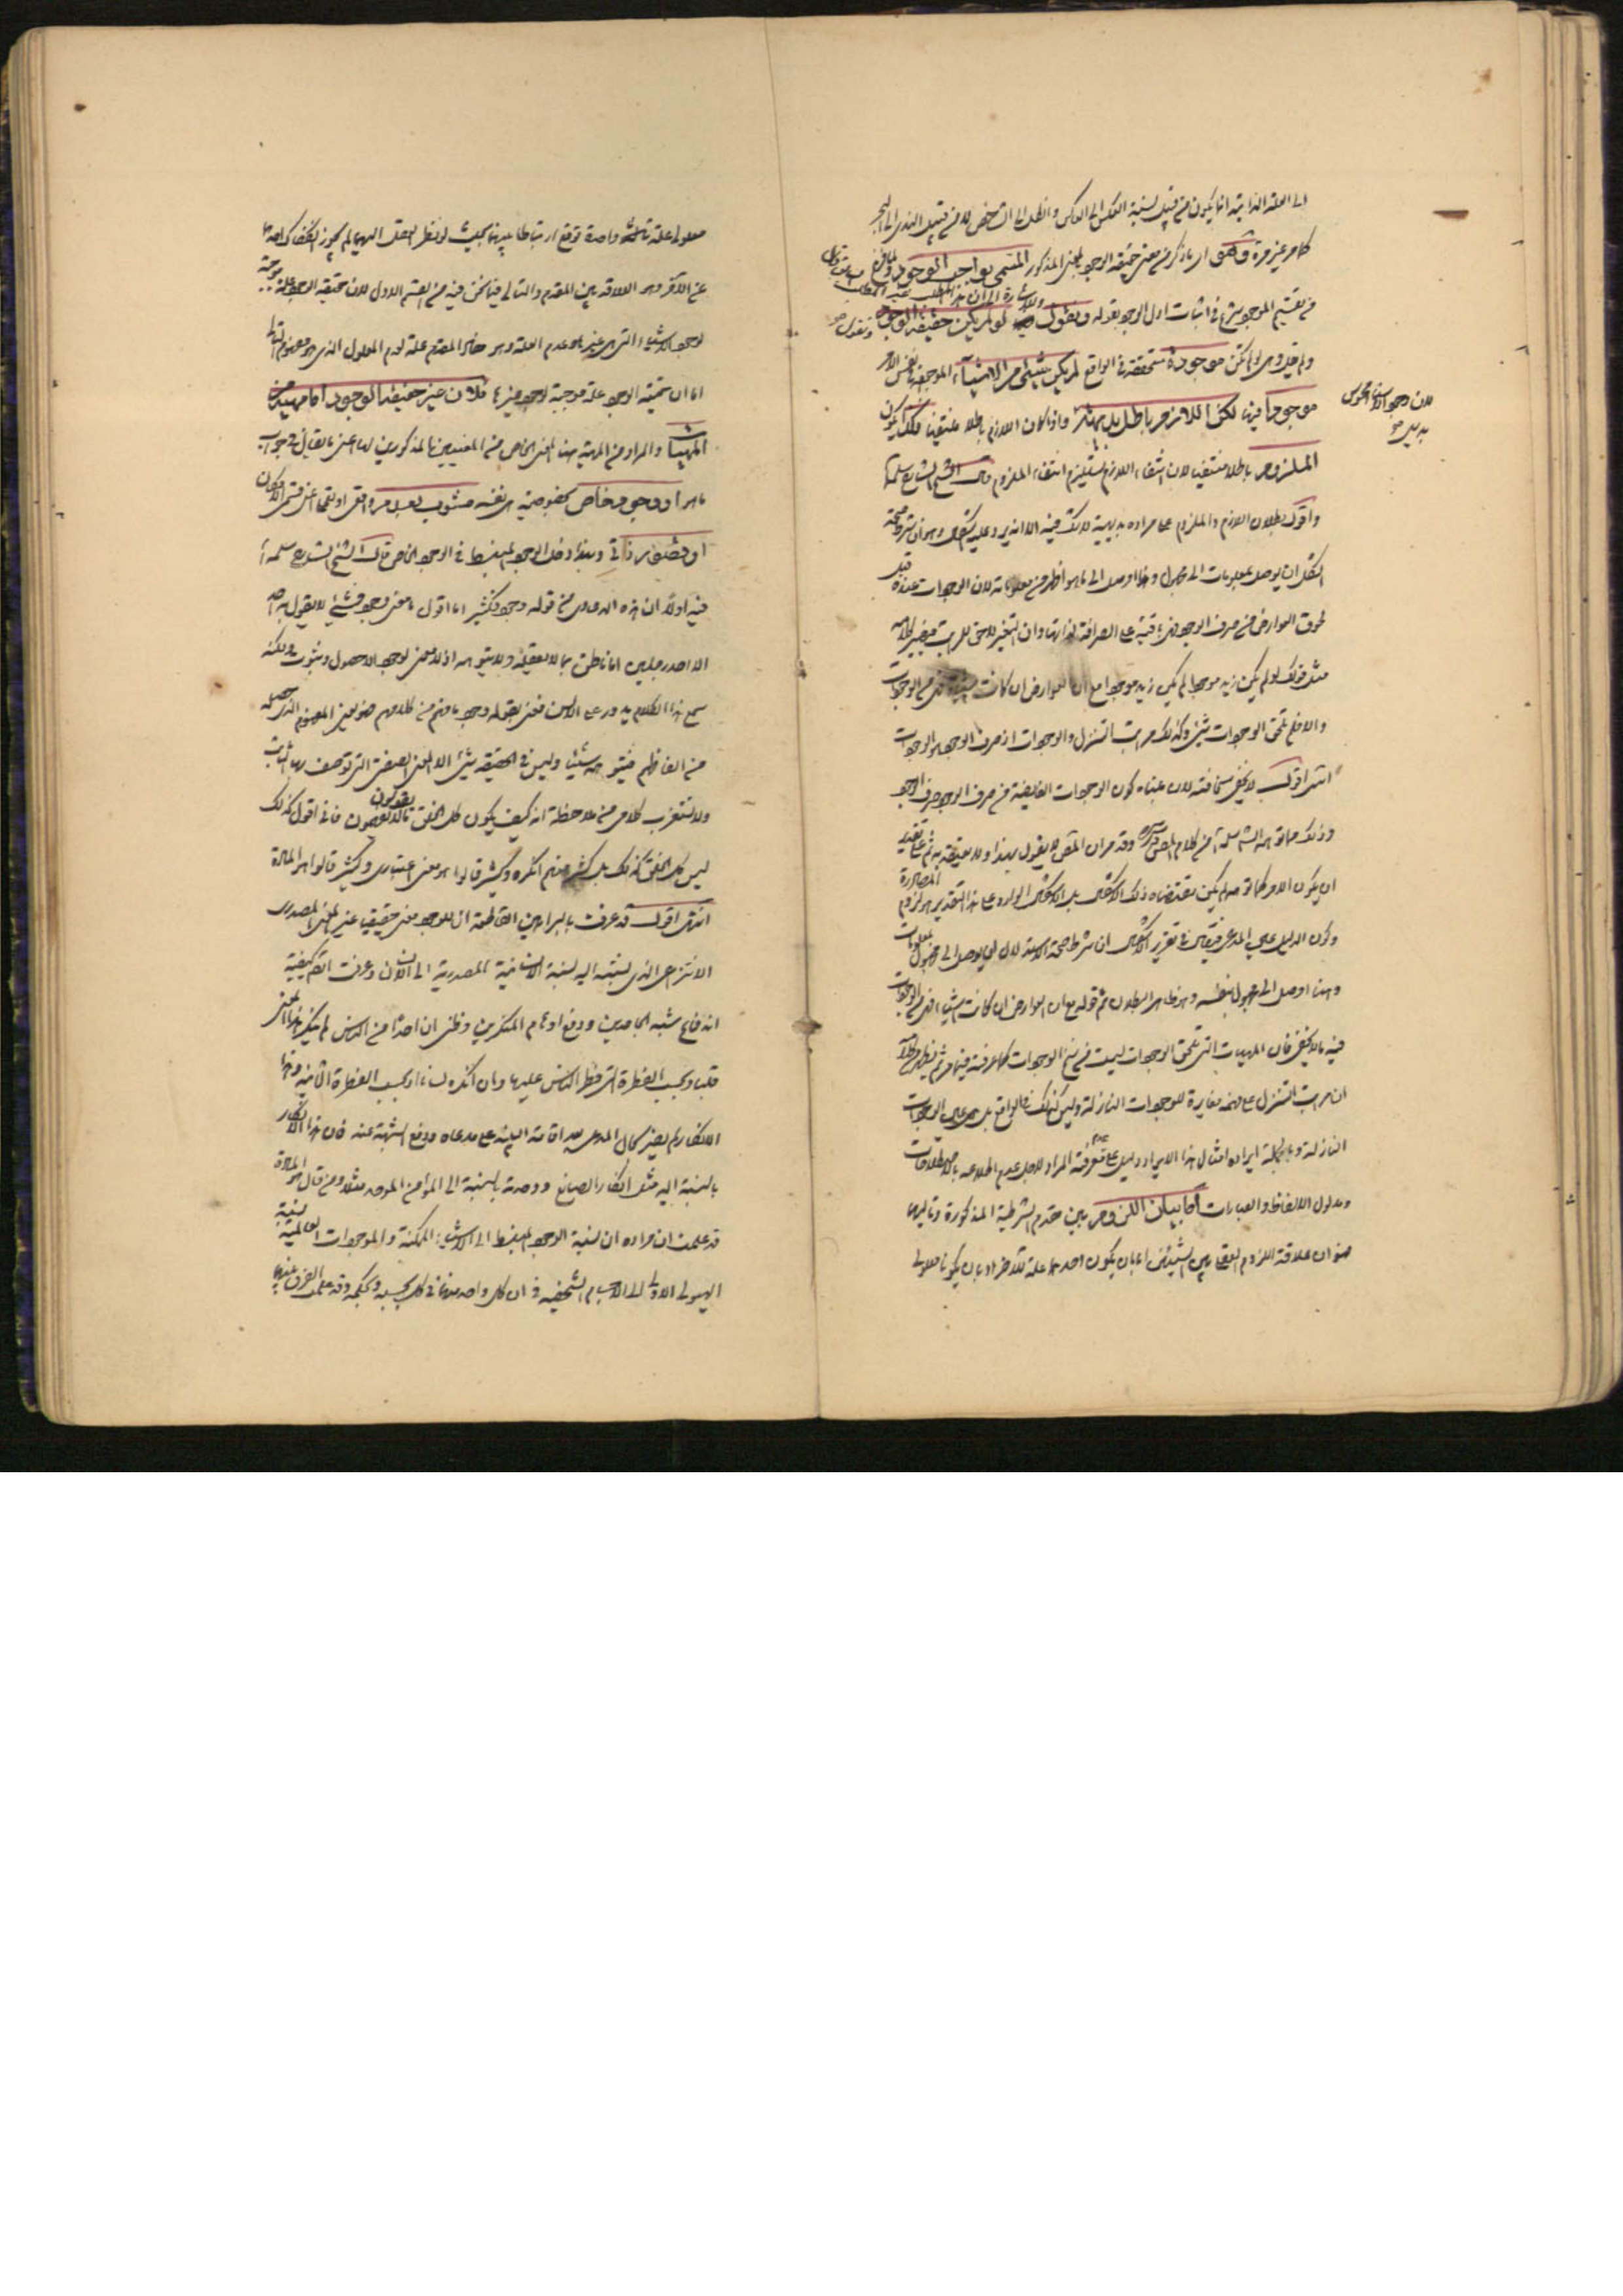 الى العلة الذاتية انما يكون من قبيل نسبة العكس الى العاكس والظل الى الشخص لا من قبيل الندى الى البحر
كما مر غير مرة وهو اى ما ذكر من معنى حقيقة الوجود بالمعنى المذكور المسمى بواجب الوجود ولما فرغ
من تقسيم الموجود شرع فى اثبات اول الوجود بقوله ونقول لو لم يكن حقيقة الوجود
موجودة متحققة فى الواقع لم يكن شىء من الاشياء الموجودة فى نفس الامر
لان وجود الاشياء المحسوس بديهى
موجودا فيها لكن اللازم باطل بديهة واذا كان اللازم باطلا منتفيا فكذا يكون
الملزوم باطلا منتفيا لان انتفاء اللازم يستلزم انتفاء الملزوم قال الشيخ الشارع سلمه الله
واقول بطلان اللازم والملزوم على مراده بديهية لا شك فيه الا انه يرد عليه شىء وهو ان شرط صحة
النقل ان يوصل بمعلومات الى مجهول وهنا اوصل الى ما هو اظهر من معلوماته لان الوجودات عنده قبل
لحوق العوارض من صرف الوجود فهى باقية على الصرافة لذاتها وان التغير لاحق للمراتب
مثل قولك لو لم يكن زيد موجودا لم يكن زيد موجودا مع ان العوارض ان كانت شيئا فهى من الوجودات
والا فلم تلحق الوجودات بشىء وكذلك مراتب التنزل والوجودات اذ صرف الوجود
انتهى اقول لا يخفى سخافته لان مبناه كون الوجودات الفايضة من صرف الوجود صرف الوجود
وذلك مما توهمه الشيخ سلمه الله من كلام المص قدس سره وقد مر ان المص لا يقول بهذا ولا يعتقد به ثم على تقدير
ان يكون الامر كما توهمه لم يكن مقتضاه ذلك الاشكال بل الاشكال الوارد على هذا التقدير هو لزوم المصادرة
وكون الدليل عين المدعى فيقال فى تقرير الاشكال ان شرط صحة الاستدلال ان يوصل الى مجهول بمعلومات
وهنا اوصل الى مجهول بنفسه وهو ظاهر البطلان ثم قوله مع ان العوارض ان كانت شيئا فهى من الوجودات
فيه ما لا يخفى فان المهيات التى تلحق الوجودات ليست من سنخ الوجودات كما عرفته فيما مر
ان مراتب التنزل على فهمه مغايرة للوجودات النازلة وليس كذلك فى الواقع بل هى عين الوجودات
النازلة وبالجملة ايراده امثال هذا الايراد دليل على عدم معرفته المراد لاجل عدم اطلاعه باصطلاحات
ومدلول الالفاظ والعبارات اما بيان اللزوم بين مقدم الشرطية المذكورة وتاليها
فهو ان علاقة اللزوم العقلى بين الشيئين اما بان يكون احدهما علة للاخر او بان يكونا معلولى
معلولى علة ثالثة واحدة توقع ارتباطا بينهما بحيث لو نظر العقل اليهما لم يجوز انفكاك احدهما
عن الآخر وهى العلاقة بين المقدم والتالى فيما نحن فيه من القسم الاول لان حقيقة الوجود علة موجبة
لوجود الاشياء التى هى غيرها وعدم العلة وهو هنا المقدم علة لعدم المعلول الذى هو مفهوم التالى
اما ان حقيقة الوجود علة موجبة لوجود غيرها فلان غير حقيقة الوجود اما مهية من
المهيات والمراد من المهية هنا المعنى الخاص من المعنيين المذكورين لها اعنى ما يقال فى جواب
ما هو او وجود خاص بخصوصية هى نفسه مشوب بعدم
او قصور ذاتى وبهذا دخل الوجود المنبسط فى الوجود الخاص قال الشيخ الشارع سلمه الله
فيه اولا ان هذه الدعاوى من قوله وجود كثير اما اقول ما معنى وجود شىء لا يقول به احد
الا احد رجلين اما ناطق بما لا يعقله ولا يتوهمه اذ لا معنى لوجود الا حصول وثبوت ولكنه
سمع هذا الكلام يدور على الالسن فعنى بقوله وجود ما فهم من كلامهم فهو يعنى المفهوم الذى حصله
من الفاظهم فيتوهمه شيئا وليس فى الحقيقة شىء الا المعنى الصفتى التى توصف بها الثابت
ولا تستغرب كلامى من ملاحظة انه كيف يكون كل الخلق يقولون ما لا يفهمون فانى اقول كذلك
ليس كل الخلق كذلك بل كثير منهم انكره وكثير قالوا هو معنى اعتبارى وكثير قالوا هو المادة
انتهى اقول قد عرفت بالبراهين القاطعة ان للوجود معنى حقيقيا غير المعنى المصدرى
الانتزاعى الذى نسبته اليه نسبة الانسانية المصدرية الى الانسان وعرفت ايضا كيفية
اندفاع شبه الجاحدين ودفع اوهام المنكرين وظنى ان احدا من الناس لم ينكر هذا المعنى
قلبا وبحسب الفطرة التى فطر الناس عليها وان انكره لسانا او بحسب الفطرة الثانية وهذا
الانكار لم يضر بحال المدعى بعد اقامة البينة على مدعاه ودفع الشبهة عنه فان هذا الانكار
بالنسبة اليه مثل انكار الصانع ووحدته بالنسبة الى المؤمن الموحد مثلا ومن قال هو المادة
قد علمت ان مراده ان نسبة الوجود المنبسط الى الاشياء الممكنة والموجودات العالمية نسبة
الهيولى الاولى الى الاجسام الشخصية فى ان كل واحد منهما فى كل بحسبه وبحكمه وقد علمت الفرق بينهما